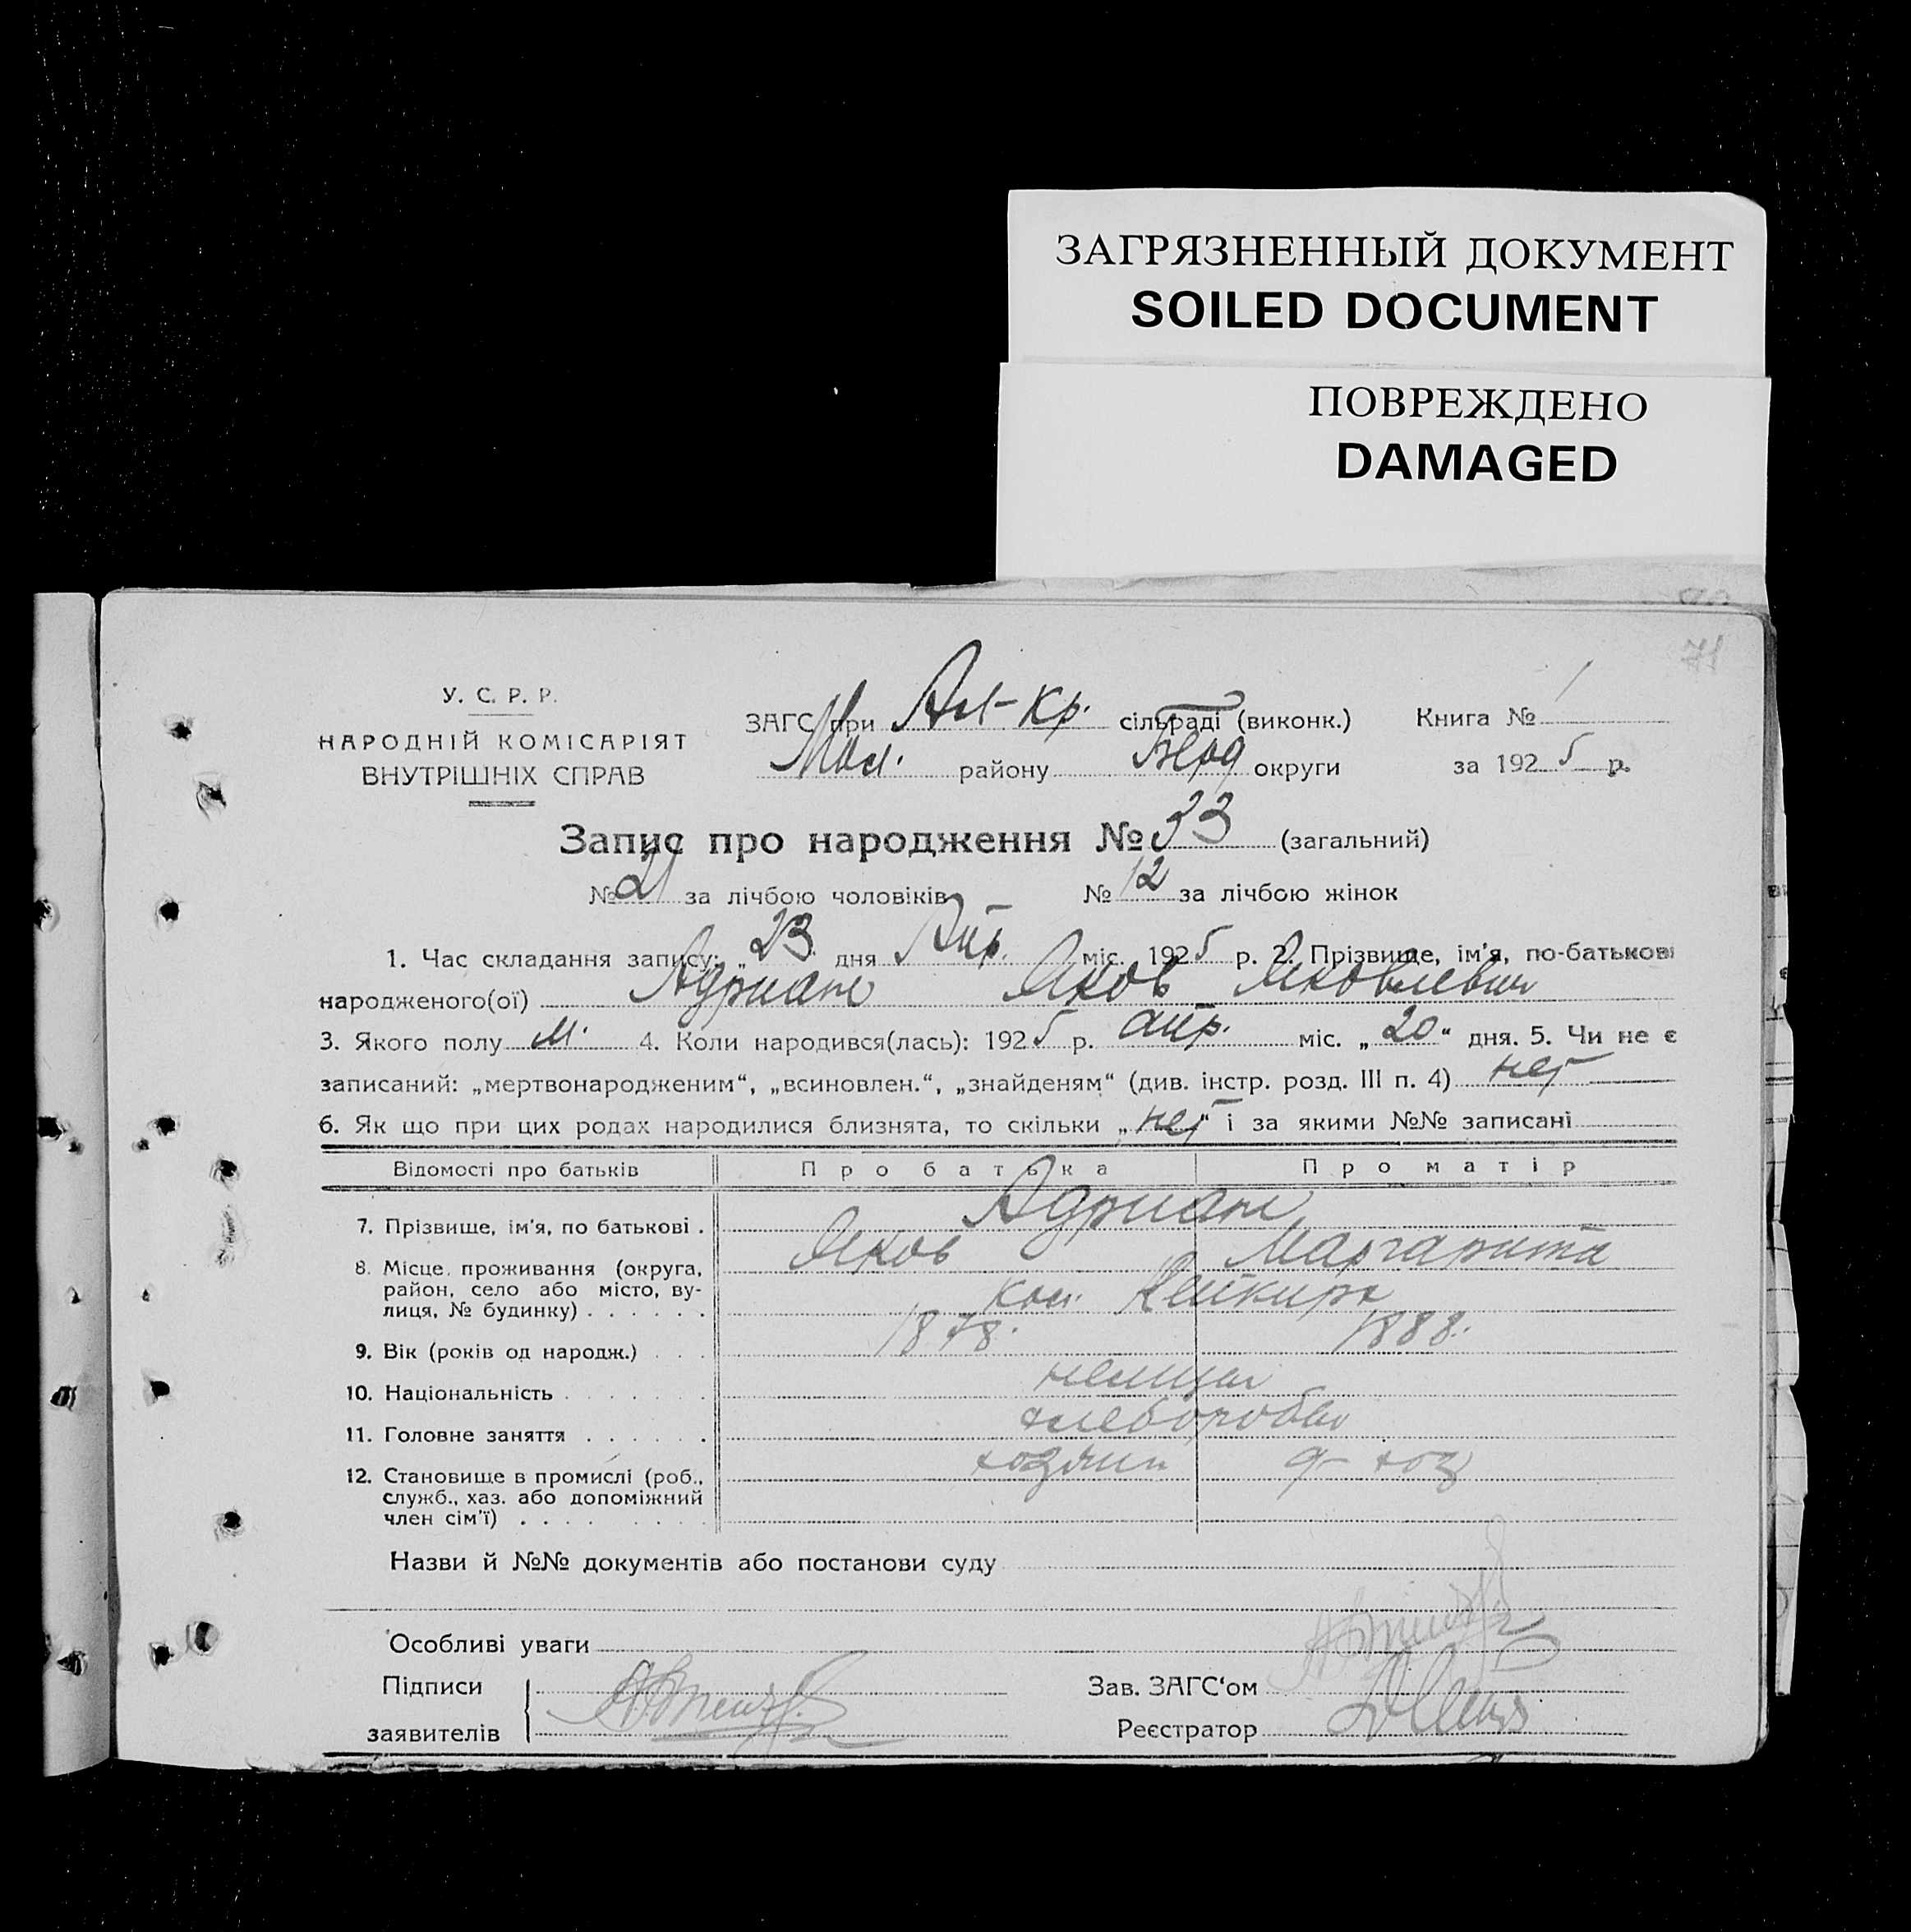 ЗАГРЯЗНЕННЫЙ ДОКУМЕНТ
SOILED DOCUMENT
ПОВРЕЖДЕНО
DAMAGED
71
У. С. Р. Р.
НАРОДНІЙ КОМІСАРІЯТ
ВНУТРІШНІХ СПРАВ
ЗАГС при Ал-Кр. сільраді (виконк.) Книга № 1
Мол. району округи за 1925 р.
Запис про народження № 33 (загальний)
№ 21 за лічбою чоловіків № 12 за лічбою жінок
1. Час складання запису: „23 дня Апр. міс. 1925 р. 2. Прізвище, ім'я, по-батькові
народженого(ої) Адриан Яков Яковлевич
3. Якого полу м. 4. Коли народився(лась): 1925 р. апр. міс. „20“ дня. 5. Чи не є
записаний: „мертвонародженим“, „всиновлен.“, „знайденям“ (див. інстр. розд. III п. 4) нет
6. Як що при цих родах народилися близнята, то скільки „нет“ і за якими №№ записані
Відомості про батьків Про батька Про матір
7. Прізвище, ім'я, по батькові . Адриан
Яков Маргарита
8. Місце проживання (округа, район, село або місто, вулиця, № будинку) . . . . . . кол.
9. Вік (років од народж.) . . . 1878. 1888.
10. Національність . . . . . . . немцы
11. Головне заняття . . . . . . хлеборобы
12. Становище в промислі (роб., служб., хаз. або допоміжний член сім'ї) . . . . . . . . хозяин д-хоз
Назви й №№ документів або постанови суду
Особливі уваги
Підписи
заявителів
Зав. ЗАГС'ом
Реєстратор